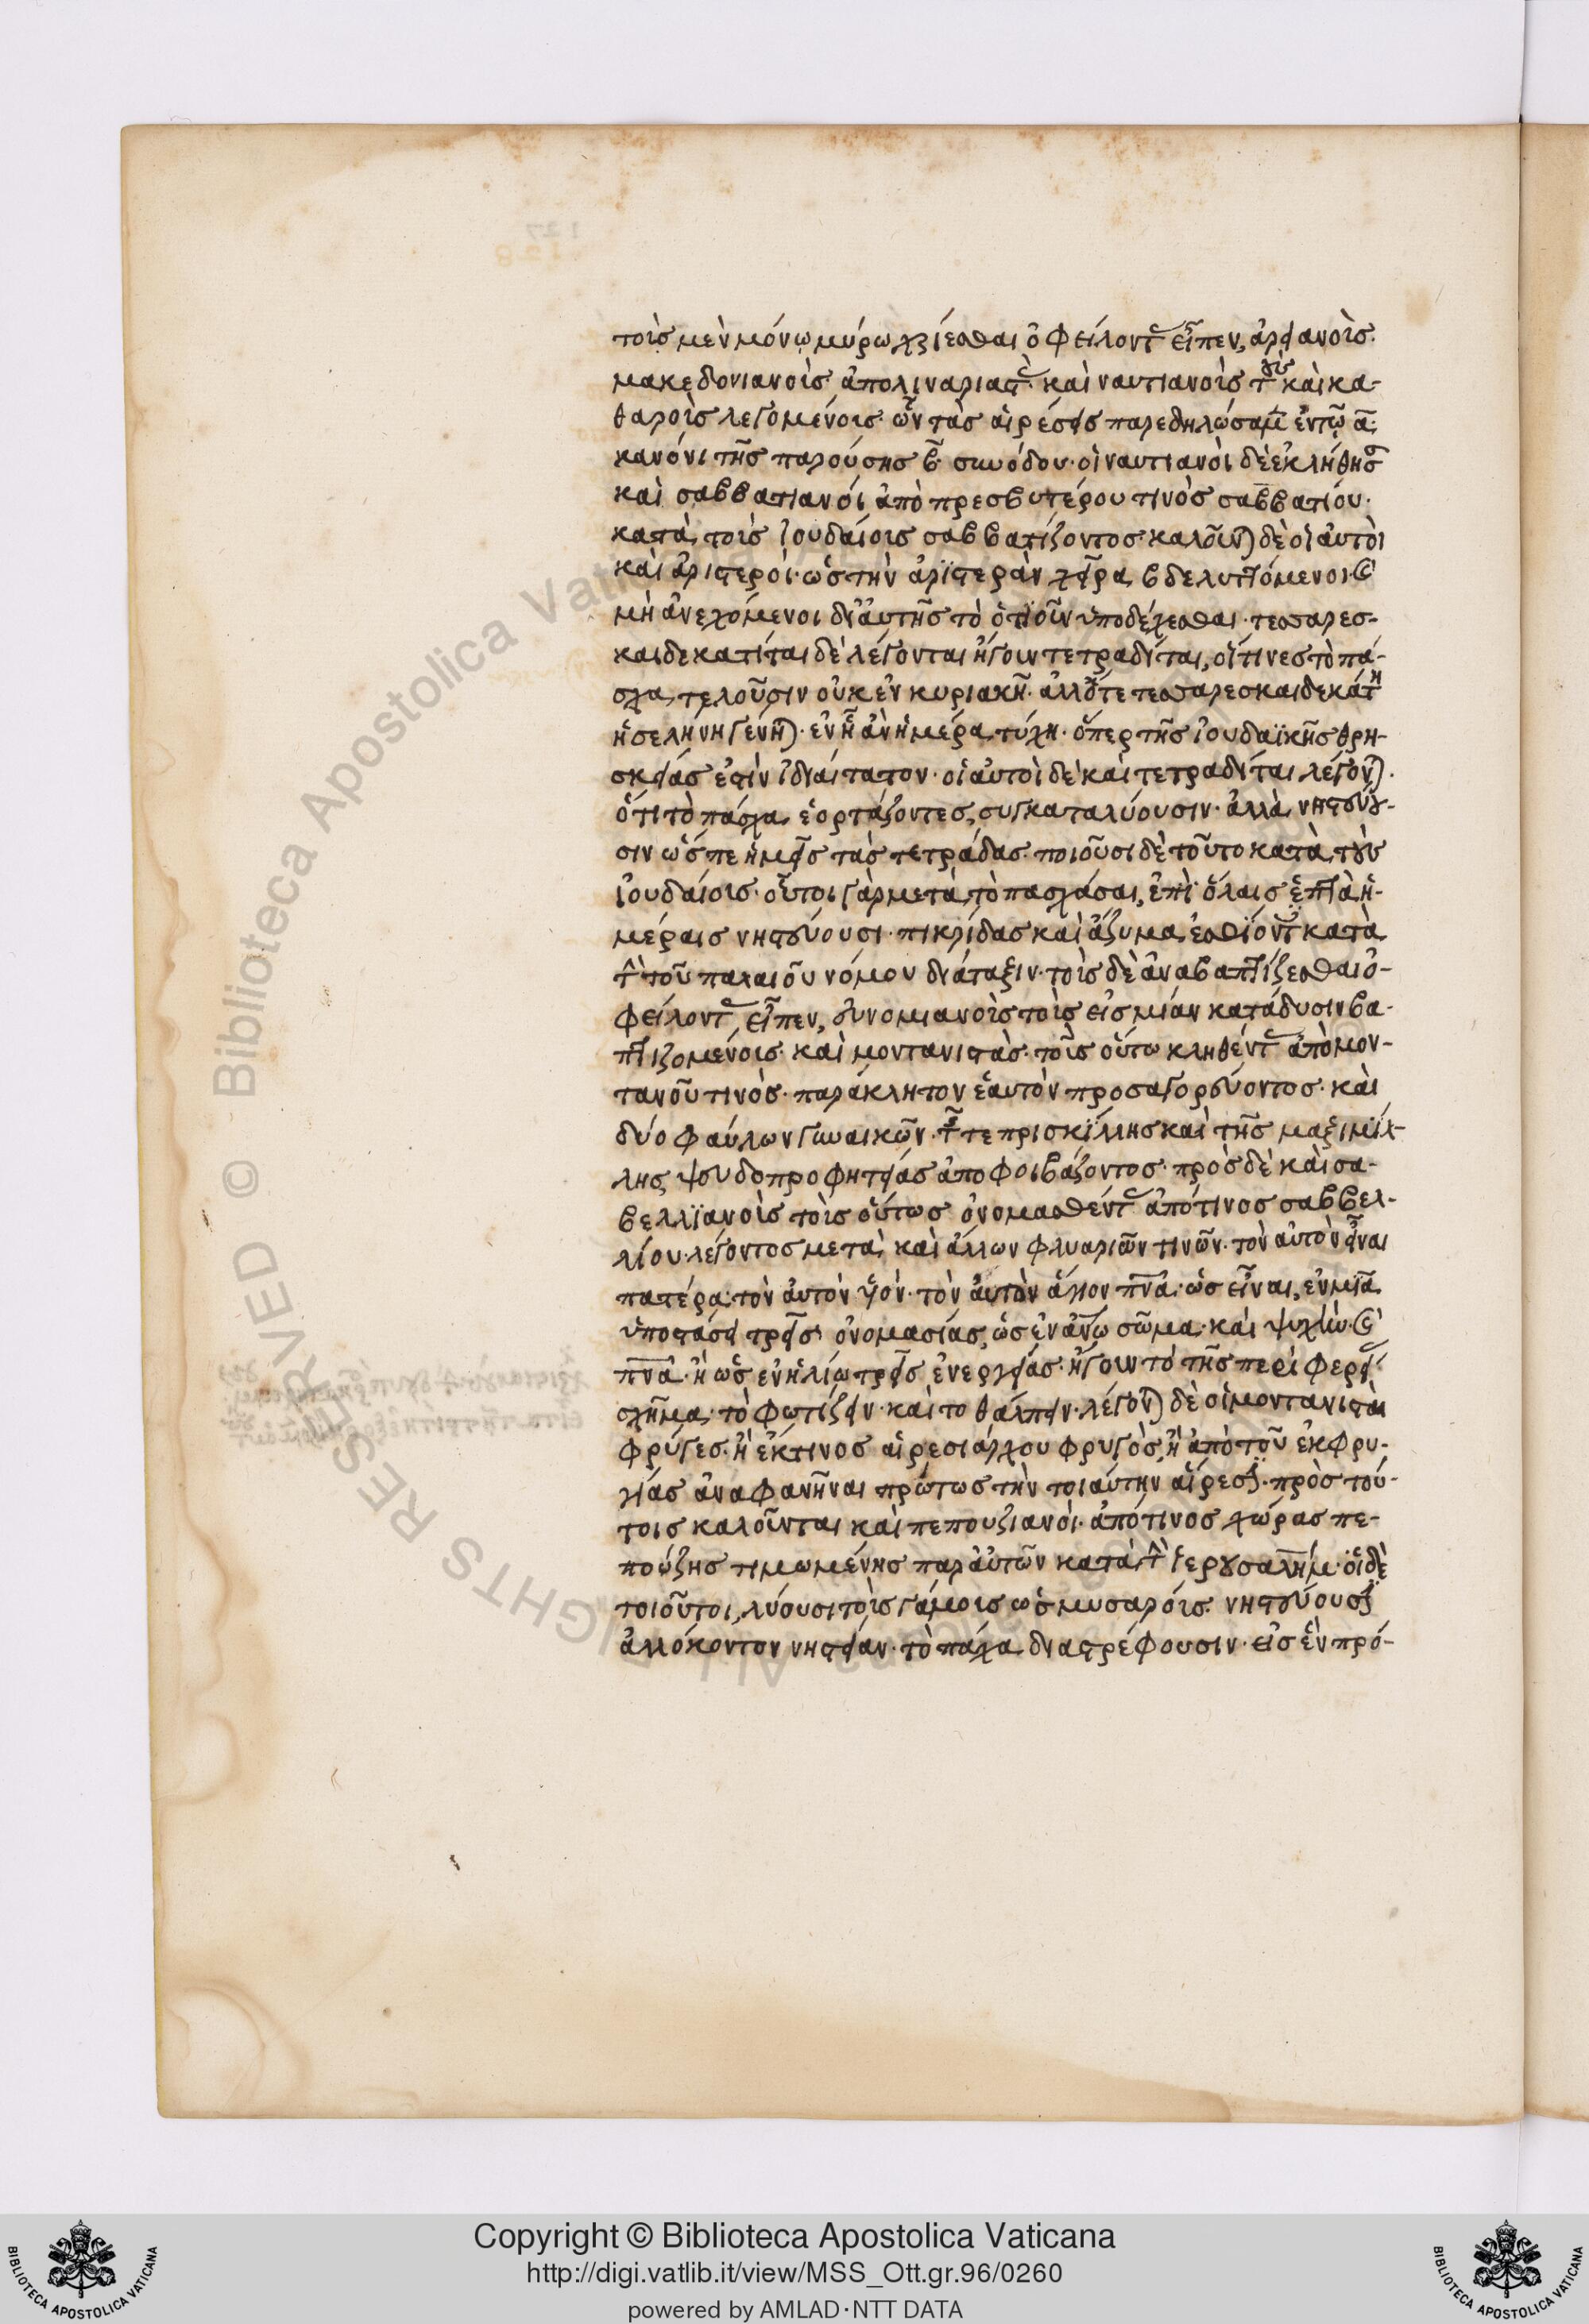 τοῖς μὲν μόνω μύρω χρίεσθαι ὀφείλοντας εἶπεν, ἀρειανοὺς.
μακεδονιανοὺς ἀπολιναριαστὰς καὶ ναυτιανοὺς τοὺς καὶ κα-
θαροὺς λεγομένους· ὧν τὰς αἱρέσεις παρεδηλώσαμεν ἐν τῷ α΄
κανόνι τῆς παρούσης β΄ συνόδου· οἱ ναυτιανοὶ δὲ ἐκλήθησαν
καὶ σαββατιανοί, ἀπὸ πρεσβυτέρου τινὸς σαββατίου·
κατὰ τοὺς ἰουδαίους σαββατίζοντος· καλοῦνται δὲ οἱ αὐτοὶ
καὶ ἀριστεροί· ὡς τὴν ἀριστερὰν χεῖρα βδελυττόμενοι καὶ
μὴ ἀνεχόμενοι δι' αὐτῆς τὸ ὁτιοῦν ὑποδέχεσθαι· τεσσαρεσ-
καιδεκατῖται δὲ λέγονται ἤγουν τετραδῖται, οἵτινες τὸ πά-
σχα, τελοῦσιν οὐκ ἐν κυριακῇ· ἀλλ' ὅτε τεσσαρεσκαιδεκάτη
ἡ σελήνη γένηται· ἐν ᾗ ἂν ἡμέρα τύχη· ὅπερ τῆς ἰουδαϊκῆς θρη-
σκείας ἐστὶν ἰδιαίτατον· οἱ αὐτοὶ δὲ καὶ τετραδῖται λέγονται·
ὅτι τὸ πάσχα ἑορτάζοντες, συγκαταλύουσιν· ἀλλὰ νηστεύου-
σιν ὥσπερ ἡμεῖς τὰς τετράδας· ποιοῦσι δὲ τοῦτο κατὰ τοὺς
ἰουδαίους· οὗτοι γὰρ μετὰ τὸ πασχάσαι, ἐπὶ ὅλαις ἑπτὰ ἡ-
μέραις νηστεύουσι· πικρίδας καὶ ἄζυμα ἐσθίοντες κατὰ
τὴν τοῦ παλαιοῦ νόμου διάταξιν· τοὺς δὲ ἀναβαπτίζεσθαι ὀ-
φείλοντας εἶπεν, εὐνομιανοὺς τοὺς εἰς μίαν κατάδυσιν βα-
πτιζομένους· καὶ μοντανιστὰς· τοὺς οὕτω κληθέντας ἀπὸ μον-
τανοῦ τινὸς· παράκλητον ἑαυτὸν προσαγορεύοντος· καὶ
δύο φαύλων γυναικῶν· τῆς τε πρισκίλλης καὶ τῆς μαξιμίλ-
λης ψευδοπροφητείας ἀποφοιβάζοντος· πρὸς δὲ καὶ σα-
βελλϊανοὺς τοὺς οὕτως ὀνομασθέντας ἀπό τινος σαββελ-
λίου· λέγοντος μετὰ καὶ ἄλλων φλυαριῶν τινῶν· τὸν αὐτὸν εἶναι
πατέρα· τὸν αὐτὸν υἱόν· τὸν αὐτὸν ἅγιον πνᾶ· ὡς εἶναι, ἐν μιᾶ
ὑποστάσει τρεῖς ὀνομασίας, ὡς ἐν ἀνῶ σῶμα· καὶ ψυχὴν· καὶ
πνᾶ· ἢ ὡς ἐν ἡλίω τρεῖς ἐνεργείας· ἤγουν τὸ τῆς περιφερείας
σχῆμα, τὸ φωτίζειν· καὶ το θάλπειν· λέγονται δὲ οἱ μοντανισταὶ
φρύγες· ἢ ἔκ τινος αἱρεσιάρχου φρυγὸς, ἢ ἀπὸ τοῦ ἐκ φρυ-
γίας ἀναφανῆναι πρώτως τὴν τοιαύτην αἵρεσιν· πρὸς τού-
τοις καλοῦνται καὶ πεπουζιανοὶ· ἀπό τινος χώρας πε-
πούζης τιμωμένης παρ' αὐτῶν κατὰ τὴν ἱερουσαλήμ· οἱ δὲ
τοιοῦτοι, λύουσι τοὺς γάμους ὡς μυσαρούς. νηστεύουσιν
ἀλλόκοντον νηστείαν· τὸ πάσχα διαστρέφουσιν· εἰς ἓν πρό-
Copyright © Biblioteca Apostolica Vaticana
http://digi.vatlib.it/view/MSS_Ott.gr.96/0260
powered by AMLAD·NTT DATA
BIBLIOTECA APOSTOLICA VATICANA
BIBLIOTECA APOSTOLICA VATICANA